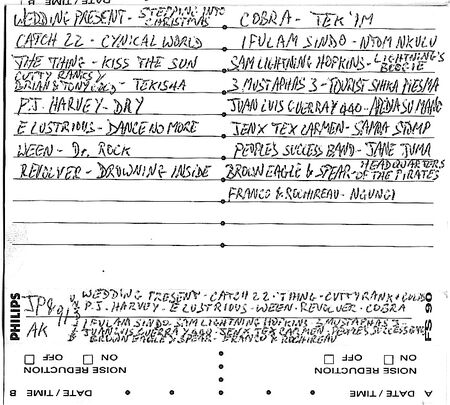 WEDDING PRESENT - STEPPING INTO CHRISTMAS
CATCH 22 - CYNICAL WORLD
THE THING - KISS THE SUN
CUTTY RANKS &
BRIAN & TONY GOLD - TEKISHA
P.J. HARVEY - DRY
E LUSTRIOUS - DANCE NO MORE
WEEN - Dr. ROCK
REVOLVER - DROWNING INSIDE
COBRA - TEK 'IM
IFULAM SINDO - NTOM NKULU
SAM LIGHTNING HOPKINS - LIGHTNING'S BOOGIE
3 MUSTAPHAS 3 - TOURIST SHIKA PJESMA
JUAN LUIS GUERRA 4.40 - AREDA SU MANO
JENX TEX CARMEN - SAMBA STOMP
PEOPLES SUCCESS BAND - JANE JUMA
BROWN EAGLE & SPEAR - HEADQUARTERS OF THE PIRATES
FRANCO & ROCHIREAU - NGUNGI
PHILIPS
JP
AK
WEDDING PRESENT - CATCH 22 - THING - CUTTY RANKS + GOLDS
P.J. HARVEY - E LUSTRIOUS - WEEN - REVOLVER - COBRA
IFULAM SINDO SAM LIGHTNING HOPKINS 3 MUSTAPHAS 3
JUAN LUIS GUERRA 4.40 - JENX TEX CARMEN - PEOPLES SUCCESS
BROWN EAGLE & SPEAR - FRANCO & ROCHIREAU
FS 90
NOISE REDUCTION
ON
OFF
NOISE REDUCTION
ON
OFF
A DATE / TIME
B DATE / TIME